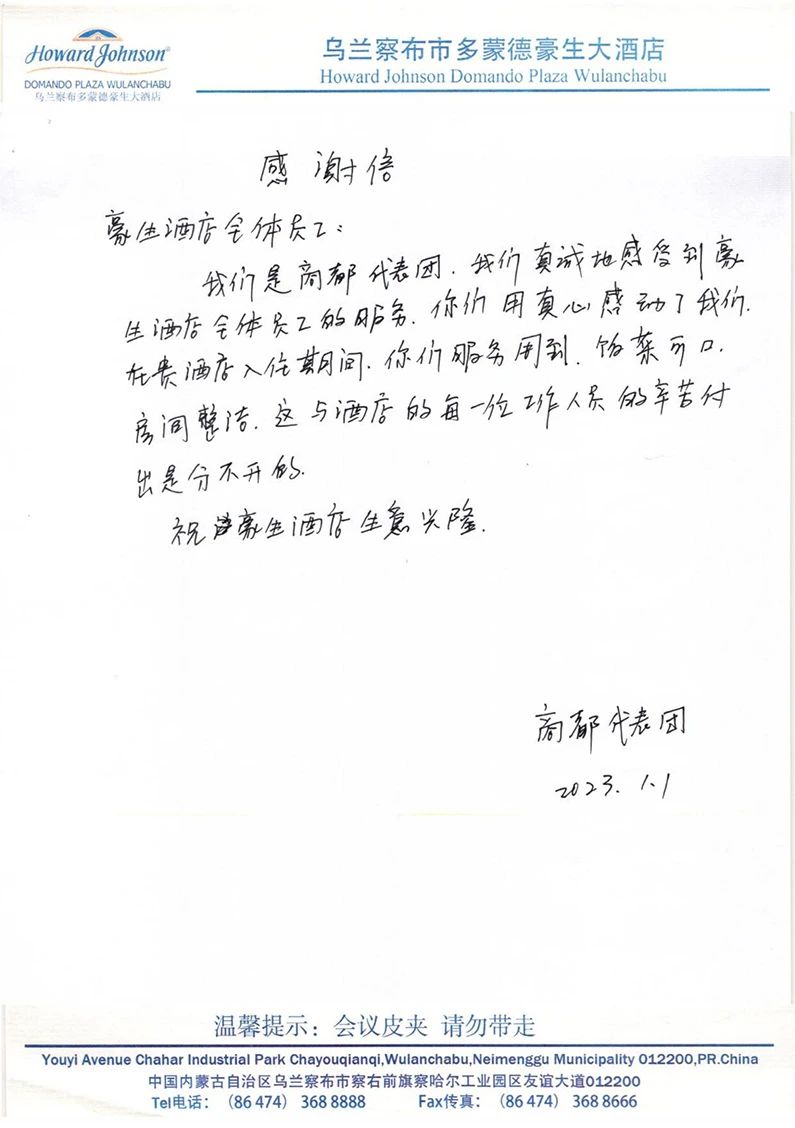 Howard Johnson®
DOMANDO PLAZA WULANCHABU
乌兰察布多蒙德豪生大酒店
乌兰察布市多蒙德豪生大酒店
Howard Johnson Domando Plaza Wulanchabu
感谢信
豪生酒店全体员工：
我们是商都代表团，我们真诚地感受到豪
生酒店全体员工的服务，你们用真心感动了我们，
在贵酒店入住期间，你们服务周到，饭菜可口，
房间整洁，这与酒店的每一位工作人员的辛苦付
出是分不开的。
祝豪生酒店生意兴隆。
商都代表团
2023.1.1
温馨提示：会议皮夹 请勿带走
Youyi Avenue Chahar Industrial Park Chayouqianqi,Wulanchabu,Neimenggu Municipality 012200,PR.China
中国内蒙古自治区乌兰察布市察右前旗察哈尔工业园区友谊大道012200
Tel电话：（86 474）368 8888 Fax传真：（86 474）368 8666